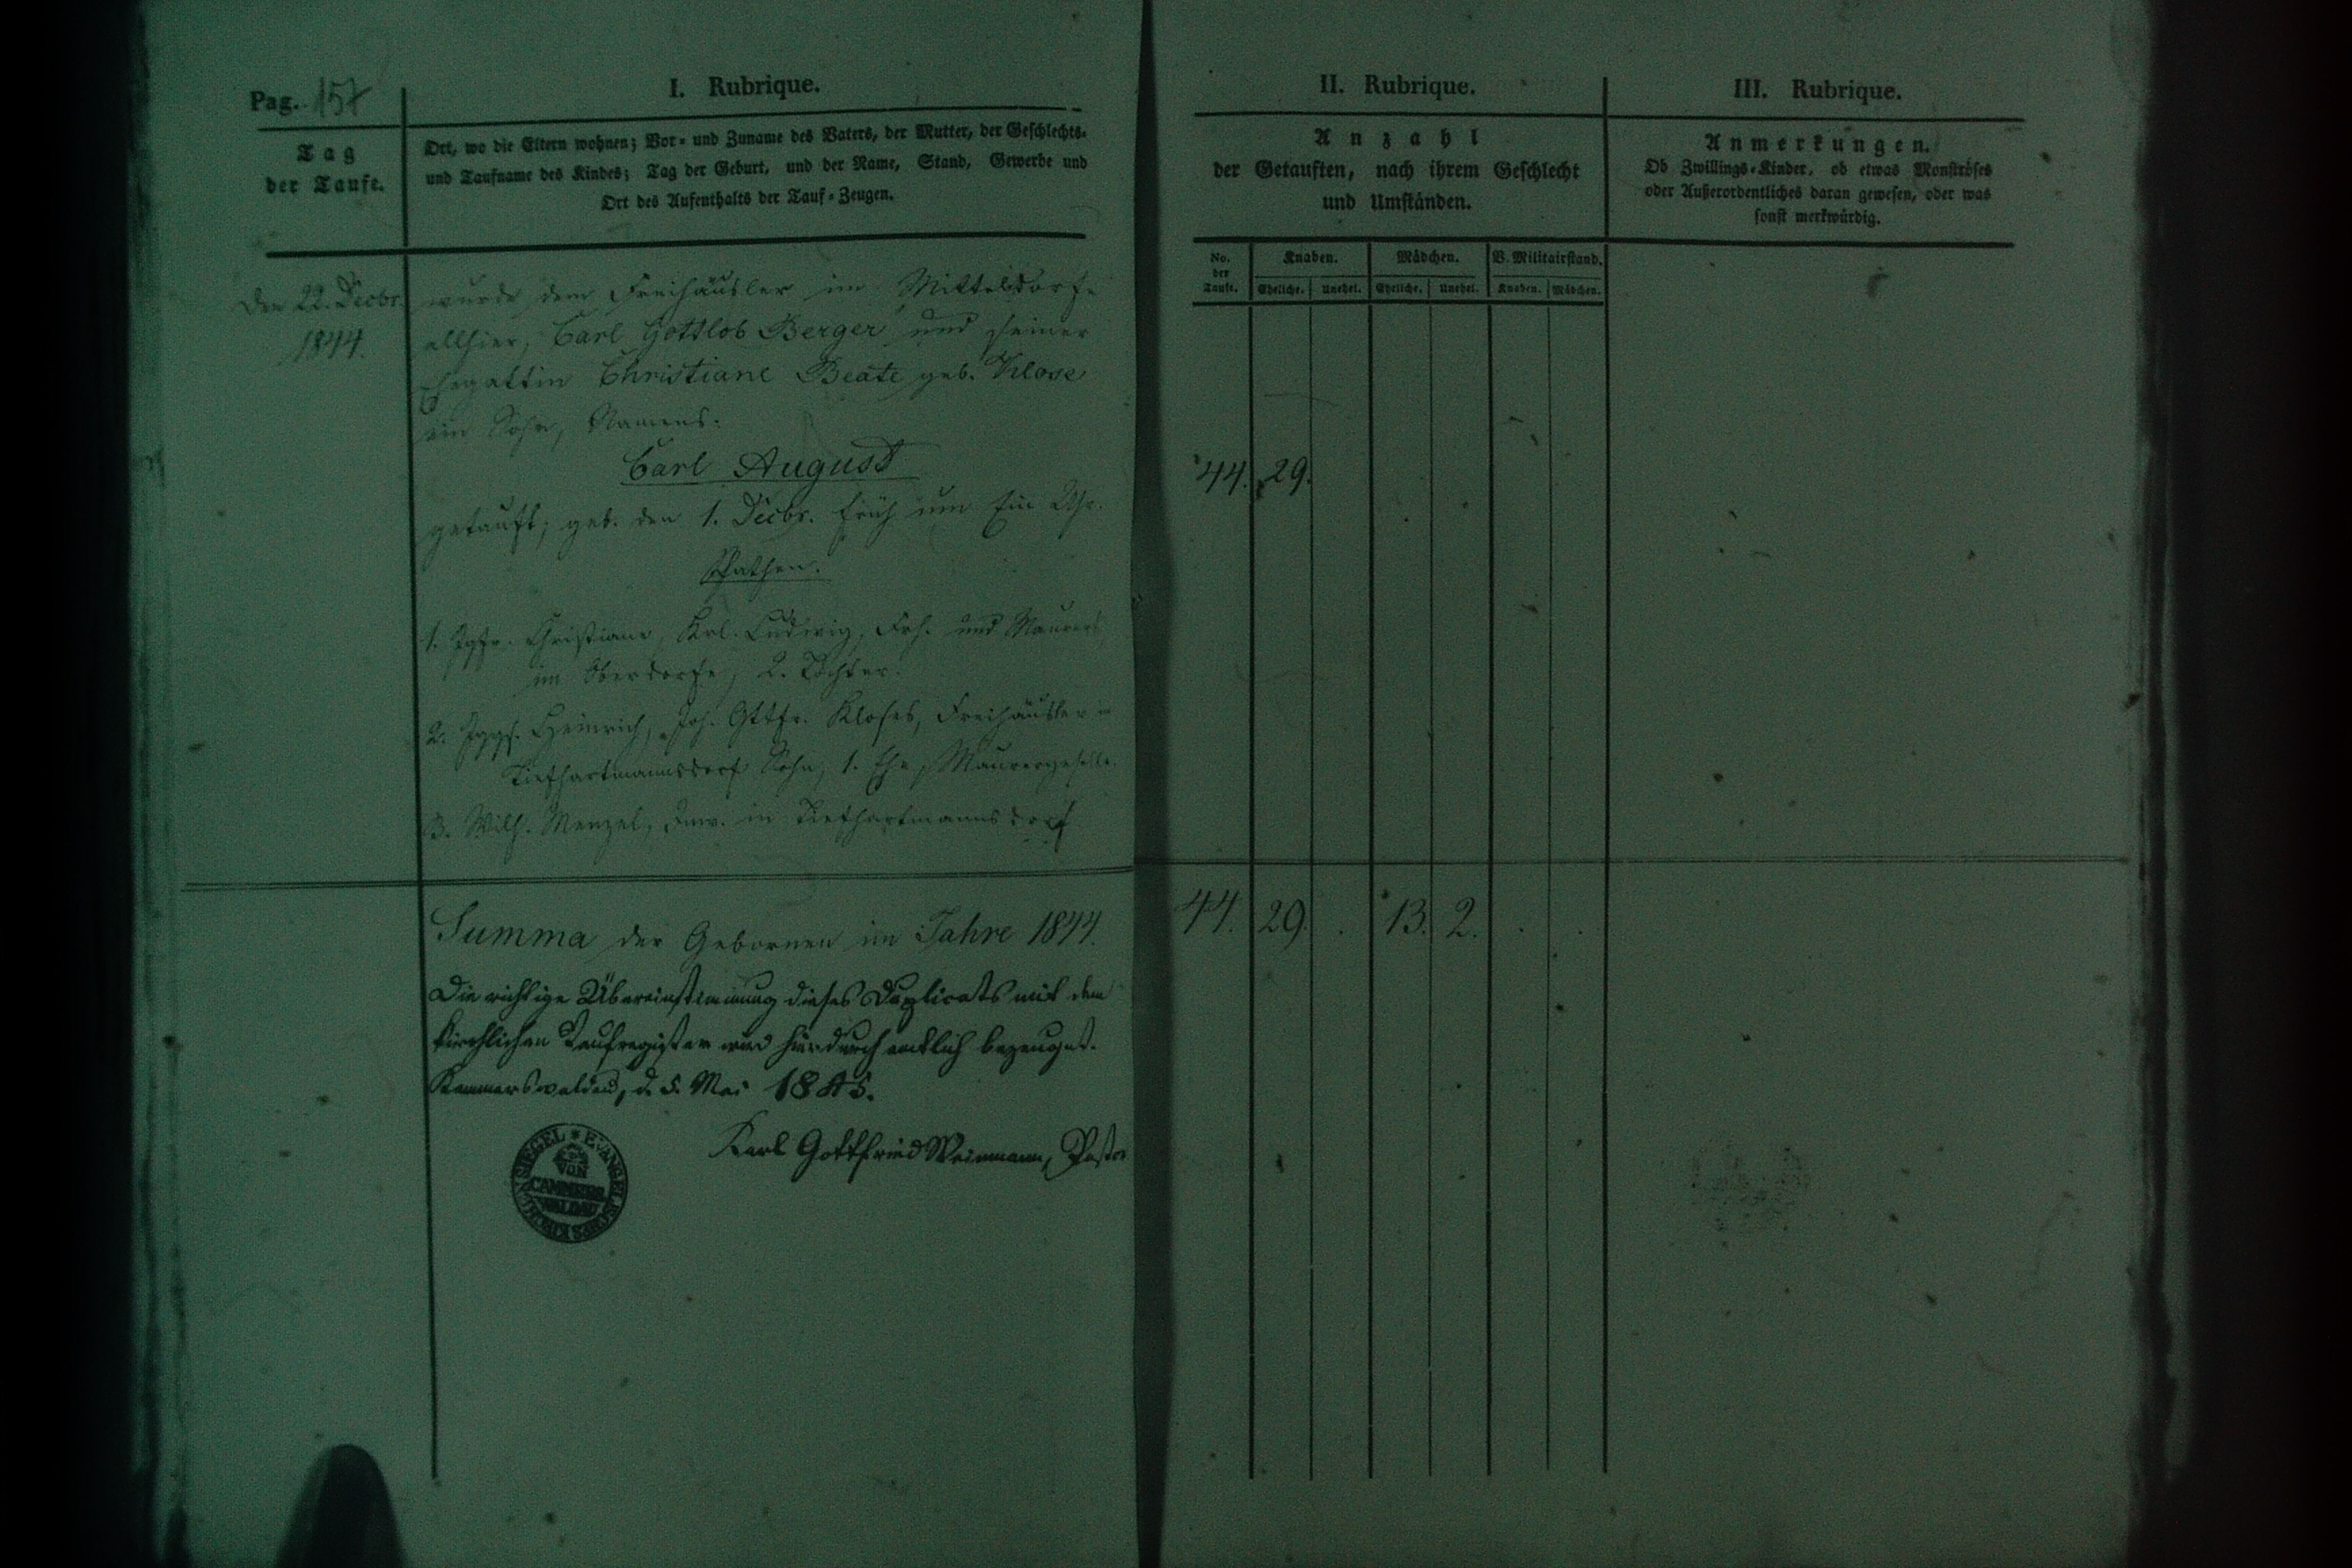 Pag. 157
I. Rubrique.
Tag
der Taufe.
Ort, wo die Eltern wohnen; Vor- und Zuname des Vaters, der Mutter, der Geschlechts-
und Taufname des Kindes; Tag der Geburt, und der Name, Stand, Gewerbe und
Ort des Aufenthalts der Tauf-Zeugen.
Den 22. Decbr.
1844.
wurde dem Freihäusler im Mitteldorfe
allhier, Carl Gottlob Berger und seiner
Ehegattin Christiane Beate geb. Klose
ein Sohn, Namens:
Carl August
getauft; geb. den 1. Decbr. früh um Ein Uhr.
Pathen.
1. Jgfr. Christiane, Krl. Ludwig, Frh. und Maurers
im Oberdorfe, 2. Tochter.
2. Jggs. Heinrich, Joh. Gttfr. Kloses, Freihäusler in
Tiefhartmannsdorf Sohn, 1. Ehe, Maurergeselle.
3. Wilh. Menzel, Inw. in Tiefhartmannsdorf
Summa der Gebornen im Jahre 1844.
Die richtige Übereinstimmung dieses Duplicats mit dem
kirchlichen Taufregister wird hierdurch amtlich bezeuget.
Kammerswaldau, d. 5. Mai 1845.
Karl Gottfried Weinmann, Pastor
SIEGEL * EVANGEL
VON
CAMMERS
WALDAU
II. Rubrique.
Anzahl
der Getauften, nach ihrem Geschlecht
und Umständen.
No. der Taufe. Knaben. Mädchen. V. Militairstand.
Eheliche. Unehel. Eheliche. Unehel. Knaben. Mädchen.
44. 29.
44. 29. . 13. 2. . .
III. Rubrique.
Anmerkungen.
Ob Zwillings-Kinder, ob etwas Monströses
oder Außerordentliches daran gewesen, oder was
sonst merkwürdig.